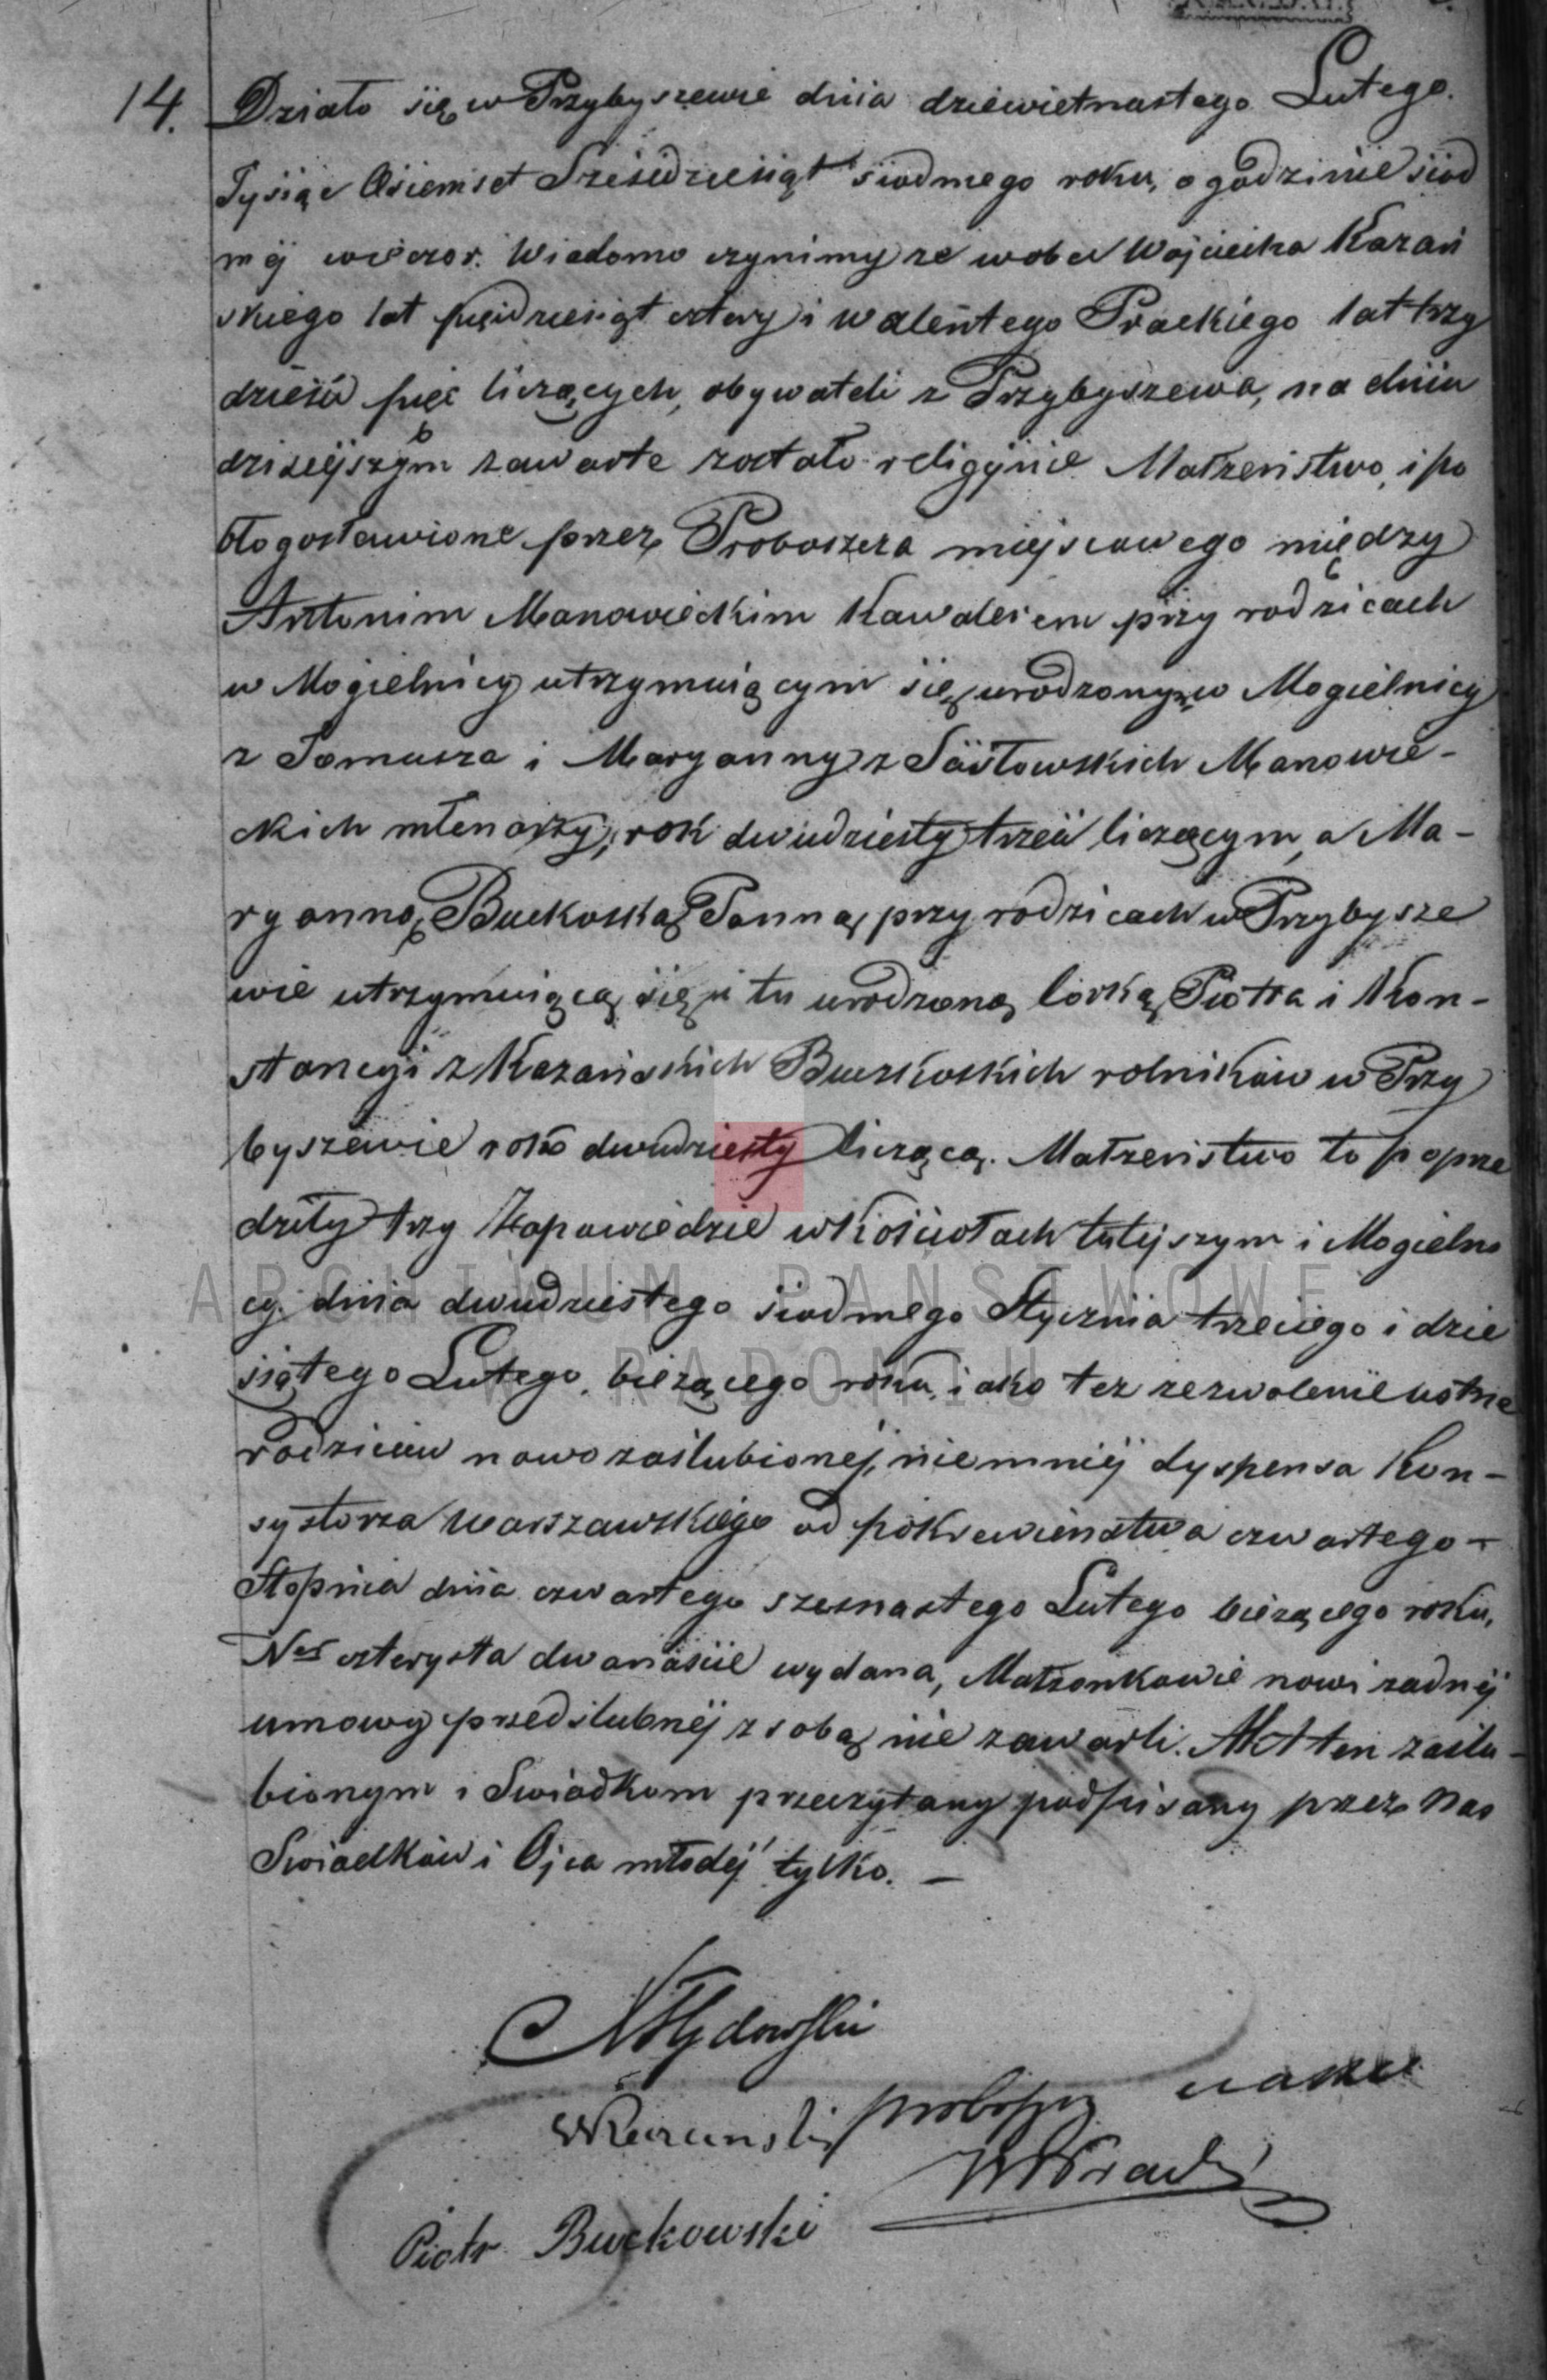 14. Działo się w Przybyszewie dnia dziewietnastego Lutego.
Tysiąc Osiemset Sześćdziesiąt siodmego roku, o godzinie siod
mej wieczor. Wiadomo czynimy ze wobec Wojciecha Kazań
skiego lat pięćdziesiąt cztery i Walentego Prackiego lat trzy
dzieści pięć liczących, obywateli z Przybyszewa, na dniu
dzisiejszym zawarte zostało religijnie Małżeństwo, i po
błogosławione przez Proboszcza miejscowego między
Antonim Manowieckim Kawalerem przy rodzicach
w Mogielnicy utrzymuiącym się, urodzonym w Mogielnicy
z Tomasza i Maryanny z Manowie-
ckich młenarzy, rok dwudziesty trzeci liczącym, a Ma-
ryanną Buckoską Panną, przy rodzicach w Przybysze
wie utrzymuiącą się i tu urodzoną córką Piotra i Kon-
stancyi z Kazańskich Buczkoskich rolników w Przy
byszewie roko dwudziesty liczącą. Małżeństwo to poprze
dziły trzy Zapowiedzie w Kościołach tutejszym i Mogielni
cy dnia dwudziestego siodmego Stycznia trzeciego i dzie
siątego Lutego bieżącego roku, iako też zezwolenie ustne
rodziców nowozaślubionej, niemniej dyspensa Kon-
systorza Warszawskiego od pokrewieństwa czwartego
Stopnia dnia czwartego szesnastego Lutego bieżącego roku,
Nor czterysta dwanaście wydana, Małżonkowie nowi żadnej
umowy przedślubnej z sobą nie zawarli. Akt ten zaślu-
bionym i Swiadkom przeczytany podpisany przez Nas
Swiadków i Ojca młodej tylko. —
proboszcz
WKazanski
WPracki
Piotr Buckowski
ARCHIWUM PAŃSTWOWE
W RADOMIU